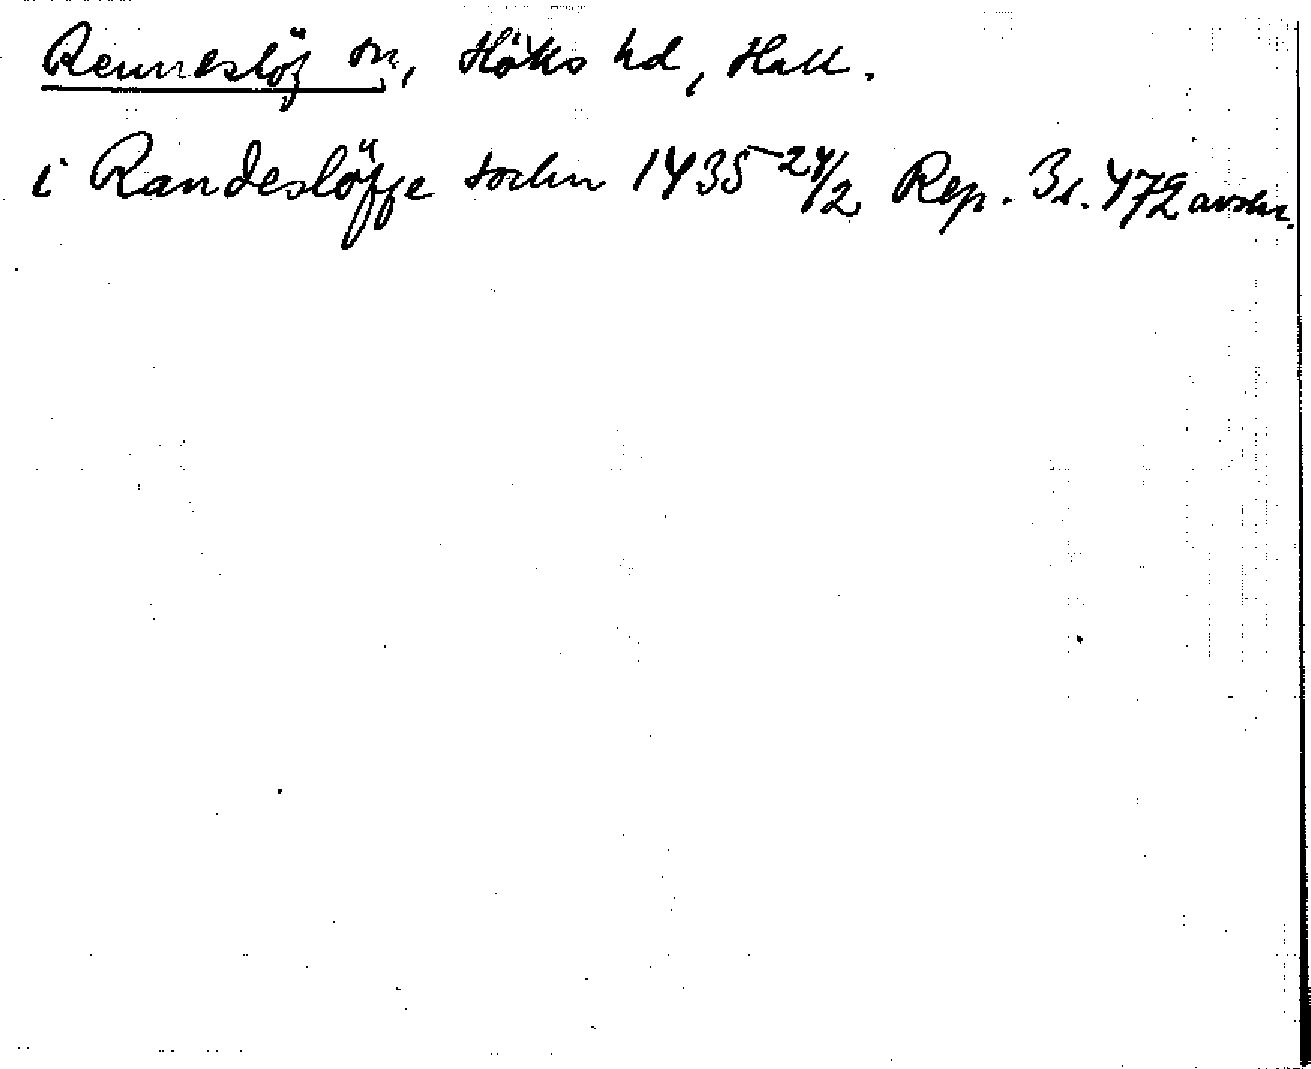 Renneslöv sn, Höks hd, Hall.
i Randeslöffe sockn 1435 24/2 Rep. 3s. 472 avskr.